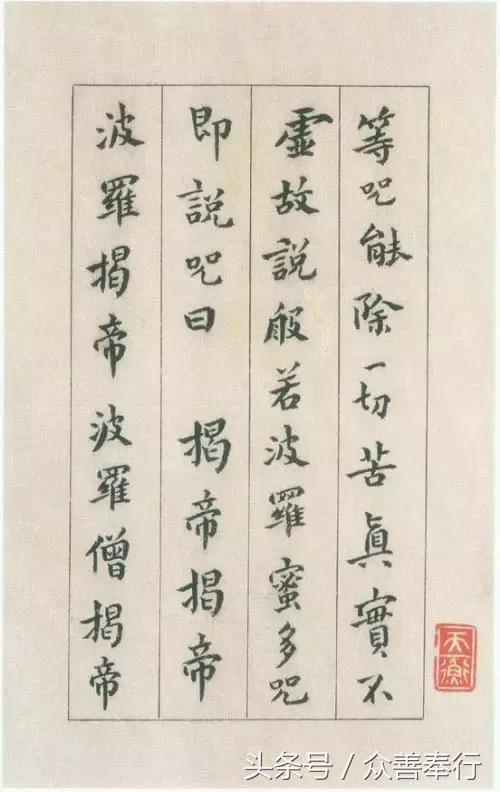 等咒能除一切苦真實不
虛故說般若波羅蜜多咒
即說咒曰 揭帝揭帝
波羅揭帝波羅僧揭帝
天衡
头条号 / 众善奉行